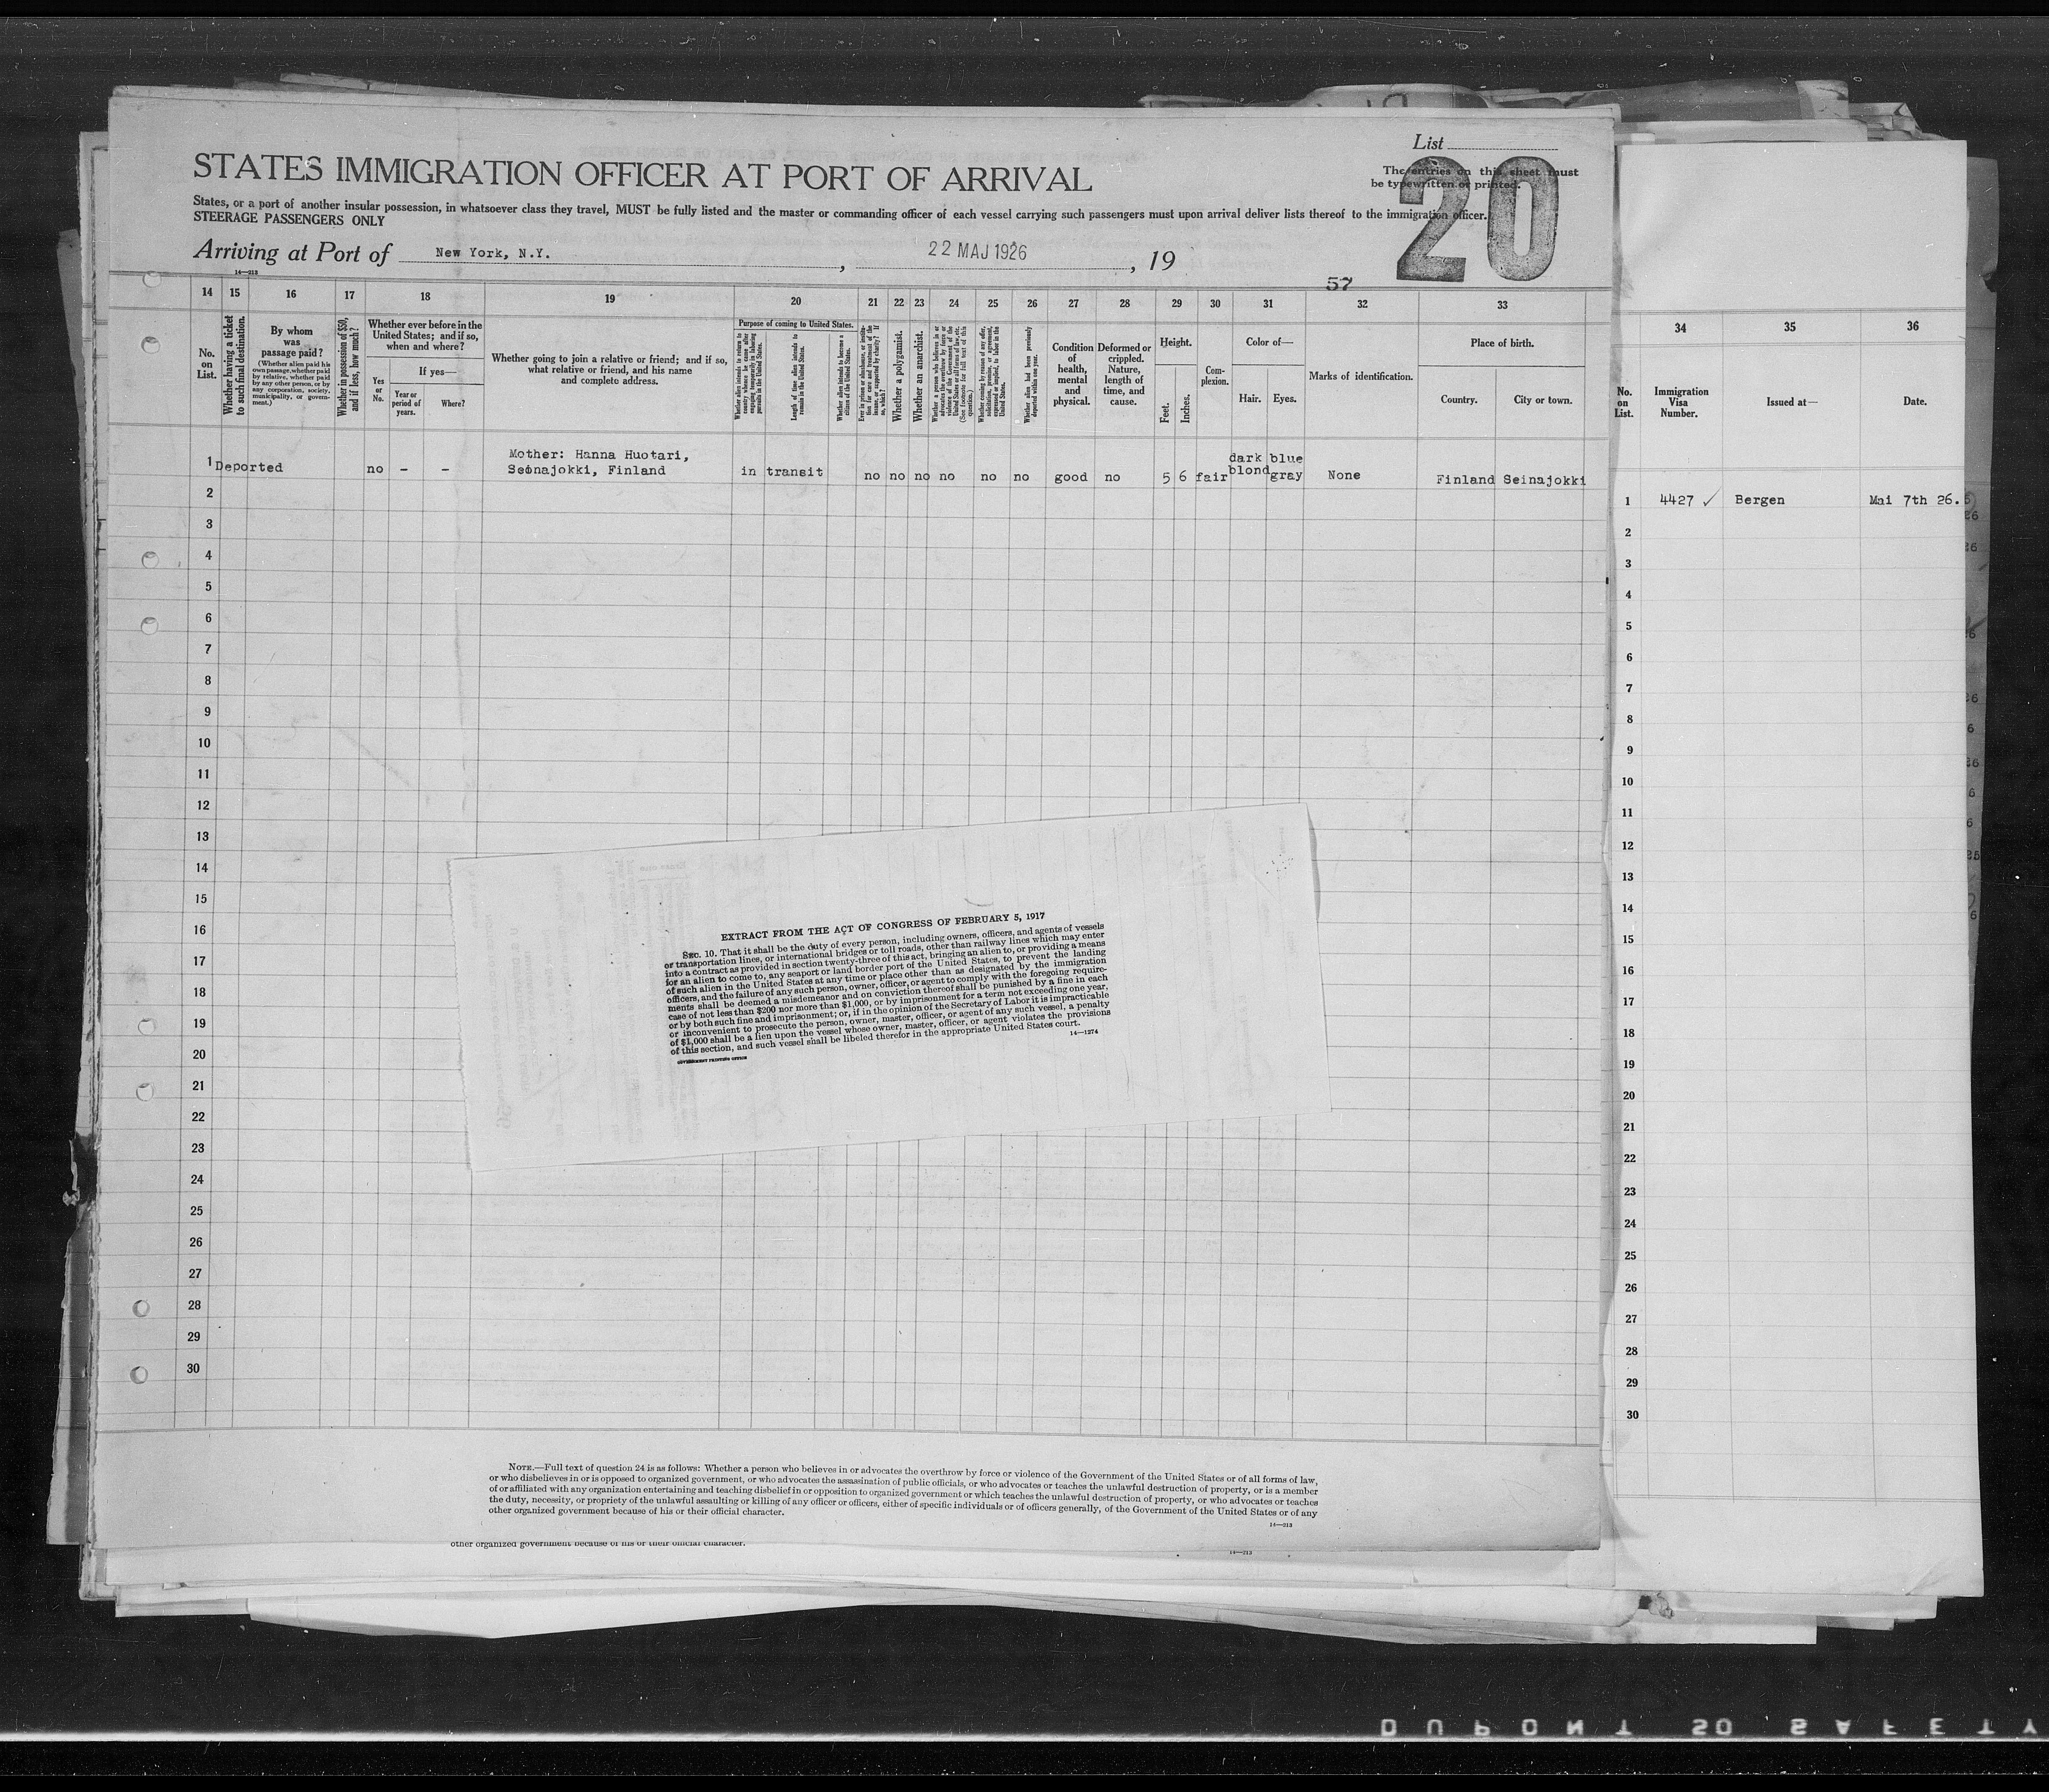 List
20
The entries on this sheet must
be typewritten or printed.
STATES IMMIGRATION OFFICER AT PORT OF ARRIVAL
States, or a port of another insular possession, in whatsoever class they travel, MUST be fully listed and the master or commanding officer of each vessel carrying such passengers must upon arrival deliver lists thereof to the immigration officer.
STEERAGE PASSENGERS ONLY
Arriving at Port of New York, N.Y. , 22 MAJ 1926 , 19
14—213
57
14 15 16 17 18 19 20 21 22 23 24 25 26 27 28 29 30 31 32 33
No.
on
List.
Whether having a ticket
to such final destination.
By whom
was
passage paid?
(Whether alien paid his
own passage, whether paid
by relative, whether paid
by any other person, or by
any corporation, society,
municipality, or govern-
ment.)
Whether in possession of $50,
and if less, how much?
Whether ever before in the
United States; and if so,
when and where?
Yes
or
No.
If yes—
Year or
period of
years.
Where?
Whether going to join a relative or friend; and if so,
what relative or friend, and his name
and complete address.
Purpose of coming to United States.
Whether alien intends to return to
country whence he came after
engaging temporarily in laboring
pursuits in the United States.
Length of time alien intends to
remain in the United States.
Whether alien intends to become a
citizen of the United States.
Ever in prison or almshouse, or institu-
tion for care and treatment of the
insane, or supported by charity? If
so, which?
Whether a polygamist.
Whether an anarchist.
Whether a person who believes in or
advocates the overthrow by force or
violence of the Government of the
United States or all forms of law, etc.
(See footnote for full text of this
question.)
Whether coming by reason of any offer,
solicitation, promise, or agreement,
expressed or implied, to labor in the
United States.
Whether alien had been previously
deported within one year.
Condition
of
health,
mental
and
physical.
Deformed or
crippled.
Nature,
length of
time, and
cause.
Height.
Feet.
Inches.
Com-
plexion.
Color of—
Hair.
Eyes.
Marks of identification.
Place of birth.
Country.
City or town.
1 Deported no - -
Mother: Hanna Huotari,
Seonajokki, Finland
in transit no no no no no no good no 5 6 fair
dark
blond
blue
gray
None Finland Seinajokki
2
3
4
5
6
7
8
9
10
11
12
13
14
15
16
17
18
19
20
21
22
23
24
25
26
27
28
29
30
EXTRACT FROM THE ACT OF CONGRESS OF FEBRUARY 5, 1917
SEC. 10. That it shall be the duty of every person, including owners, officers, and agents of vessels
or transportation lines, or international bridges or toll roads, other than railway lines which may enter
into a contract as provided in section twenty-three of this act, bringing an alien to, or providing a means
for an alien to come to, any seaport or land border port of the United States, to prevent the landing
of such alien in the United States at any time or place other than as designated by the immigration
officers, and the failure of any such person, owner, officer, or agent to comply with the foregoing require-
ments shall be deemed a misdemeanor and on conviction thereof shall be punished by a fine in each
case of not less than $200 nor more than $1,000, or by imprisonment for a term not exceeding one year,
or by both such fine and imprisonment; or, if in the opinion of the Secretary of Labor it is impracticable
or inconvenient to prosecute the person, owner, master, officer, or agent of any such vessel, a penalty
of $1,000 shall be a lien upon the vessel whose owner, master, officer, or agent violates the provisions
of this section, and such vessel shall be libeled therefor in the appropriate United States court.
14—1274
GOVERNMENT PRINTING OFFICE
NOTE.—Full text of question 24 is as follows: Whether a person who believes in or advocates the overthrow by force or violence of the Government of the United States or of all forms of law,
or who disbelieves in or is opposed to organized government, or who advocates the assassination of public officials, or who advocates or teaches the unlawful destruction of property, or is a member
of or affiliated with any organization entertaining and teaching disbelief in or opposition to organized government or which teaches the unlawful destruction of property, or who advocates or teaches
the duty, necessity, or propriety of the unlawful assaulting or killing of any officer or officers, either of specific individuals or of officers generally, of the Government of the United States or of any
other organized government because of his or their official character.
14—213
other organized government because of his or their official character.
14—213
34 35 36
No.
on
List.
Immigration
Visa
Number.
Issued at—
Date.
1 4427 ✓ Bergen Mai 7th 26.
2
3
4
5
6
7
8
9
10
11
12
13
14
15
16
17
18
19
20
21
22
23
24
25
26
27
28
29
30
DUPONT SO SAFETY